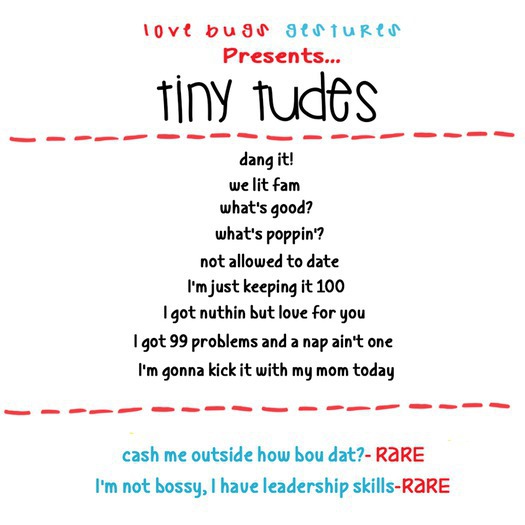 love bugs gestures
Presents...
tiny tudes
dang it!
we lit fam
what's good?
what's poppin'?
not allowed to date
I'm just keeping it 100
I got nuthin but love for you
I got 99 problems and a nap ain't one
I'm gonna kick it with my mom today
cash me outside how bou dat?- RARE
I'm not bossy, I have leadership skills-RARE